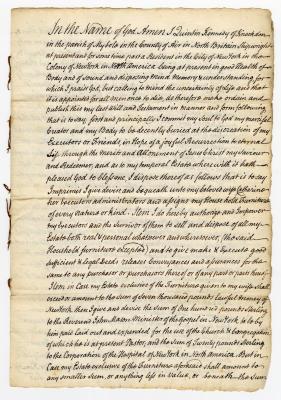 In the Name of God Amen I Quintin Kennedy of Knockdon
in the parish of Maybole in the County of Air in North Brittain Esquire
at present and for some time past a Resident in the City of New York in the
Colony of New York in North America being at present in good Health of
Body and of sound and disposing mind Memory & understanding for
which I praise God, but calling to mind the uncertainty of life and that
it is appointed for all men once to die, do therefore make ordain and
publish this my last will and Testament in manner and form following
that is to say first and principally I commit my Soul to God my merciful
Creator and my Body to be decently buried at the discretion of my
Executors or Friends, in Hope of a joyful Resurrection to eternal
Life through the merits and Attonement of Jesus Christ my Saviour
and Redeemer, and as to my temporal Estate wherewith it hath
pleased God to bless me, I dispose thereof as follows that is to say
Imprimis I give devise and bequeath unto my beloved wife Catherine
her Executors administrators and assigns my House hold Furniture
of every nature or kind. Item I do hereby authorize and Impower
my Executors and the survivor of them to sell and dispose of all my
Estate both real & personal whatsoever and wheresoever, (the said
Household furniture excepted) and to give make & Execute good
sufficient & legal Deeds releases Conveyances and assurances for the
same to any purchaser or purchasers thereof or of any part or parts thereof
Item In Case my Estate exclusive of the Furniture given to my wife shall
exceed or amount to the sum of seven thousand pounds lawful money of
New York then I give and devise the Sum of One hundred pounds Sterling
to the Reverend John Mason Minister of the Gospel in New York to be by
him paid Laid out and expended for the use of the Church & Congregation
of which he is at present Pastor, and the Sum of Twenty pounds Sterling
to the Corporation of the Hospital of New York in North America. But in
Case my Estate exclusive of the Furniture aforesaid shall amount to
any smaller Sum, or anything less in value, or beneath the Sum